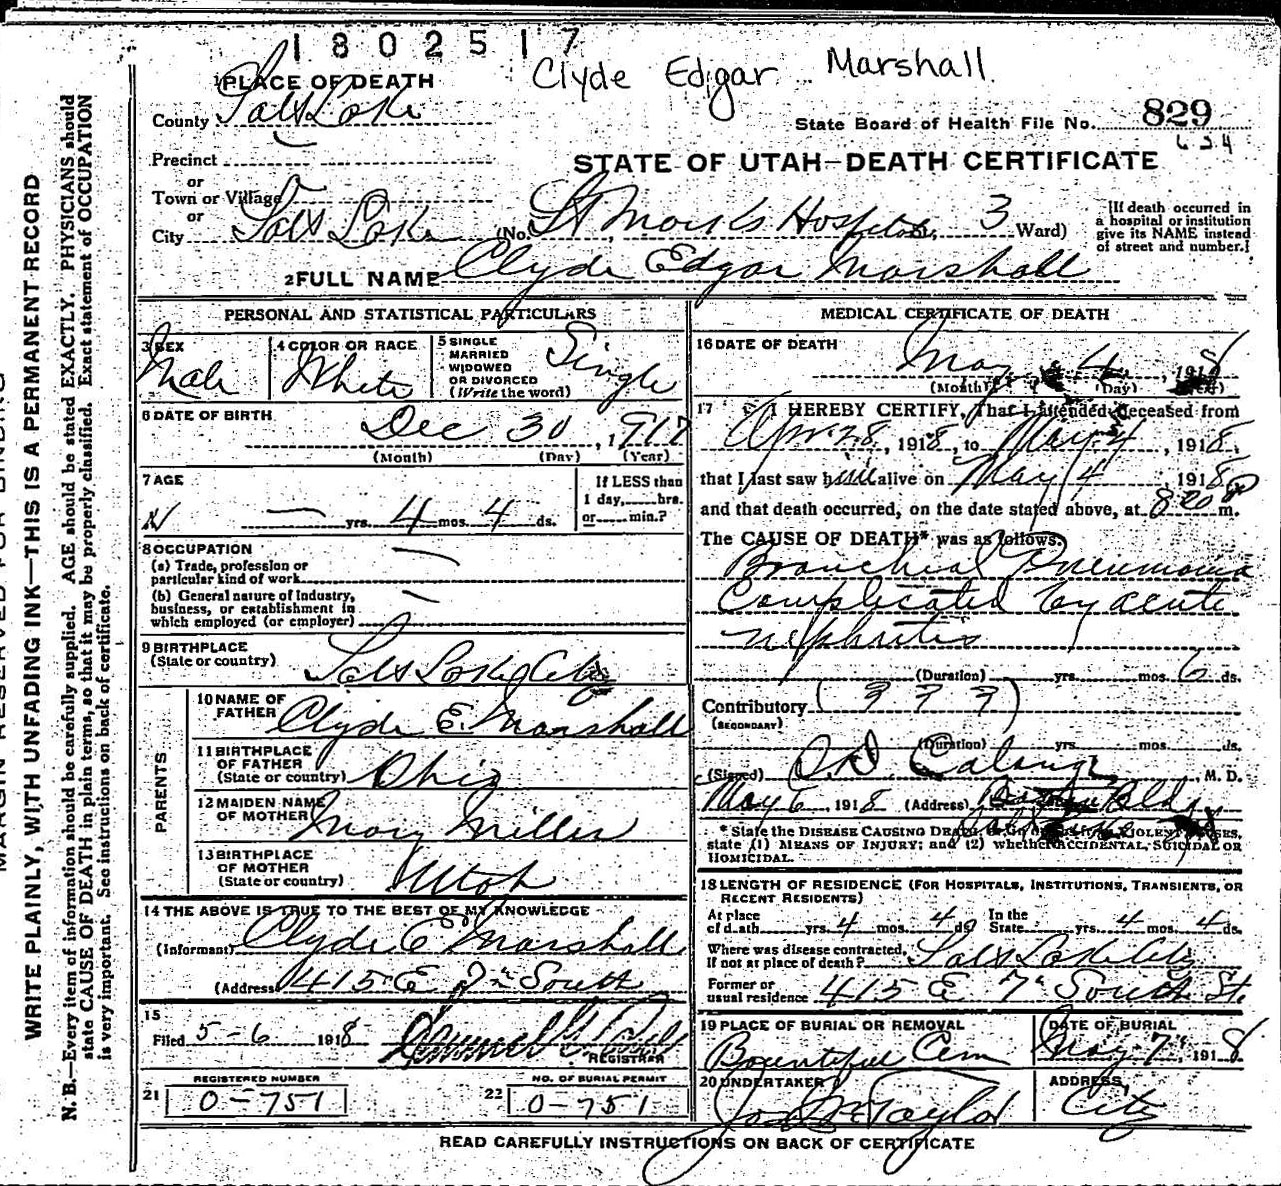 1802517
Clyde Edgar Marshall
1 PLACE OF DEATH
County Salt Lake
State Board of Health File No. 829
634
Precinct
or
Town or Village
or
City Salt Lake (No. St Marks Hospital, 3 Ward)
STATE OF UTAH—DEATH CERTIFICATE
[If death occurred in
a hospital or institution
give its NAME instead
of street and number.]
2 FULL NAME Clyde Edgar Marshall
PERSONAL AND STATISTICAL PARTICULARS
3 SEX
Male
4 COLOR OR RACE
White
5 SINGLE
MARRIED
WIDOWED
OR DIVORCED
(Write the word)
Single
6 DATE OF BIRTH
Dec 30, 1917
(Month) (Day) (Year)
7 AGE
— yrs. 4 mos. 4 ds.
If LESS than
1 day,......hrs.
or......min.?
8 OCCUPATION
(a) Trade, profession or
particular kind of work
(b) General nature of Industry,
business, or establishment in
which employed (or employer)
9 BIRTHPLACE
(State or country) Salt Lake City
PARENTS
10 NAME OF
FATHER Clyde E. Marshall
11 BIRTHPLACE
OF FATHER
(State or country) Ohio
12 MAIDEN NAME
OF MOTHER Mary Miller
13 BIRTHPLACE
OF MOTHER
(State or country) Utah
14 THE ABOVE IS TRUE TO THE BEST OF MY KNOWLEDGE
(Informant) Clyde E Marshall
(Address) 415 E 7th South
15
Filed 5-6 1918
REGISTRAR
REGISTERED NUMBER
21 0-751
NO. OF BURIAL PERMIT
22 0-751
MEDICAL CERTIFICATE OF DEATH
16 DATE OF DEATH
May 4, 1918
(Month) (Day) (Year)
17 I HEREBY CERTIFY, That I attended deceased from
Apr. 28, 1918, to May 4, 1918,
that I last saw him alive on May 4 1918
and that death occurred, on the date stated above, at 8 20 P m.
The CAUSE OF DEATH* was as follows:
Bronchial Pneumonia
Complicated by acute
nephritis
(Duration) yrs. mos. 6 ds.
Contributory (? ? ?)
(SECONDARY)
(Duration) yrs. mos. ds.
(Signed) M. D.
May 6, 1918 (Address) Bldg
* State the DISEASE CAUSING DEATH, or in deaths from VIOLENT CAUSES,
state (1) MEANS OF INJURY; and (2) whether ACCIDENTAL, SUICIDAL OR
HOMICIDAL.
18 LENGTH OF RESIDENCE (FOR HOSPITALS, INSTITUTIONS, TRANSIENTS, OR
RECENT RESIDENTS)
At place
of death yrs. 4 mos. 4 ds. In the
State yrs. 4 mos. 4 ds.
Where was disease contracted,
if not at place of death? Salt Lake City
Former or
usual residence 415 E 7th South St.
19 PLACE OF BURIAL OR REMOVAL
Bountiful Cem
DATE OF BURIAL
May 7, 1918
20 UNDERTAKER
Taylor
ADDRESS
City
READ CAREFULLY INSTRUCTIONS ON BACK OF CERTIFICATE
WRITE PLAINLY, WITH UNFADING INK—THIS IS A PERMANENT RECORD
N. B.—Every item of information should be carefully supplied. AGE should be stated EXACTLY. PHYSICIANS should
state CAUSE OF DEATH in plain terms, so that it may be properly classified. Exact statement of OCCUPATION
is very important. See instructions on back of certificate.